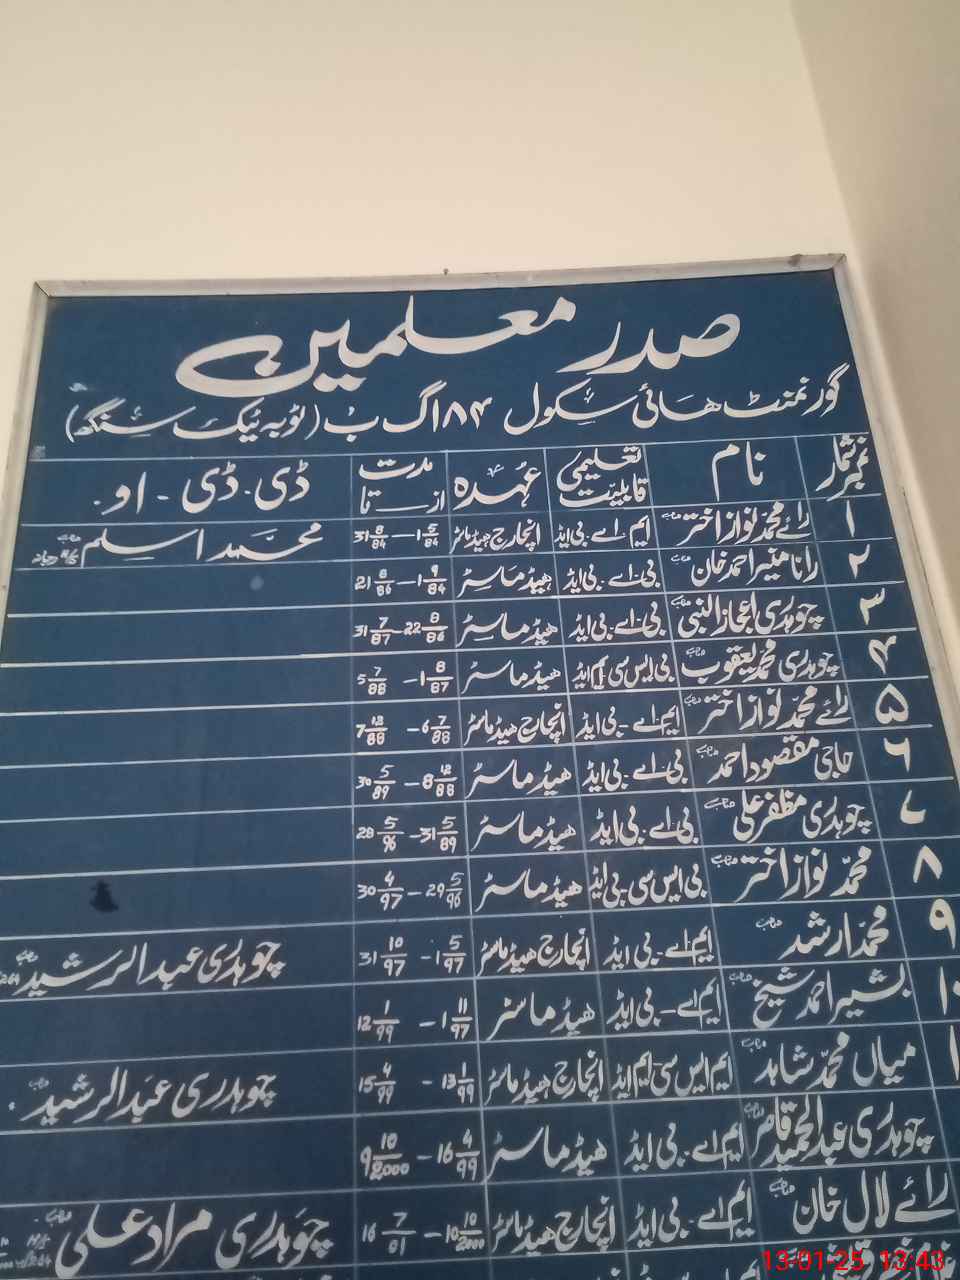 صدر معلمین
گورنمنٹ ھائی سکول ۱۸۴ گ ب (ٹوبہ ٹیک سنگھ)
نمبر شمار نام تعلیمی قابلیّت عُہدہ مدت از تا ڈی. ڈی - او.
۱ رائے محمّد نواز اختر صاحب ایم اے - بی ایڈ انچارج ھیڈ ماسٹر 1 5/84 — 31 8/84 محمّد اسلم صاحب
۲ رانا منیر احمد خان صاحب بی - اے - بی ایڈ ھیڈ ماسٹر 1 9/84 — 21 8/86
۳ چوہدری اعجاز النبی صاحب بی - اے - بی ایڈ ھیڈ ماسٹر 22 8/86 — 31 7/87
۴ چوہدری محمّد یعقوب صاحب بی ایس سی ایم ایڈ ھیڈ ماسٹر 1 8/87 — 5 7/88
۵ رائے محمّد نواز اختر صاحب ایم اے - بی ایڈ انچارج ھیڈ ماسٹر 6 7/88 — 7 12/88
۶ حاجی مقصود احمد صاحب بی - اے - بی ایڈ ھیڈ ماسٹر 8 12/88 — 30 5/89
۷ چوہدری مظفر علی صاحب بی اے - بی ایڈ ھیڈ ماسٹر 31 5/89 — 28 5/96
۸ محمّد نواز اختر صاحب بی ایس سی - بی ایڈ ھیڈ ماسٹر 29 5/96 — 30 4/97
۹ محمّد ارشد صاحب ایم اے - بی ایڈ انچارج ھیڈ ماسٹر 1 5/97 — 31 10/97 چوہدری عبدالرشید صاحب
۱۰ بشیر احمد شیخ صاحب ایم اے - بی ایڈ ھیڈ ماسٹر 1 11/97 — 12 1/99
۱ میاں محمّد شاہد صاحب ایم ایس سی ایم ایڈ انچارج ھیڈ ماسٹر 13 1/99 — 15 4/99 چوہدری عبدالرشید صاحب
چوہدری عبدالحمید صاحب ایم اے - بی ایڈ ھیڈ ماسٹر 16 4/99 — 9 10/2000
رائے لال خان صاحب ایم اے - بی ایڈ انچارج ھیڈ ماسٹر 10 10/2000 — 16 7/01 چوہدری مراد علی صاحب
13-01-25 13:43